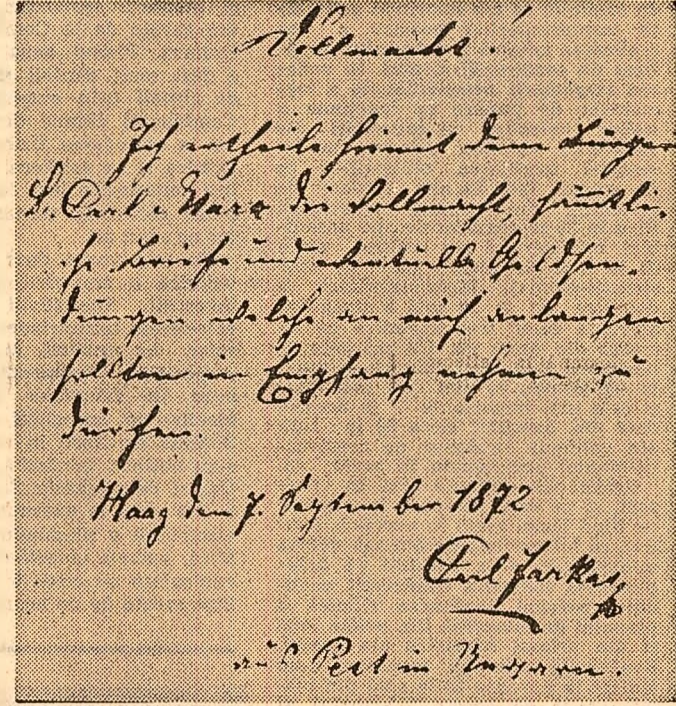 Vollmacht!
Ich ertheile hiemit dem Bürger
D. Carl Marx die Vollmacht, sämtli-
che Briefe und eventuelle Geldsen-
dungen welche an mich anlangen
sollten in Empfang nehmen zu
dürfen.
Haag den 7. September 1872
Carl Farkas
aus Pest in Ungarn.